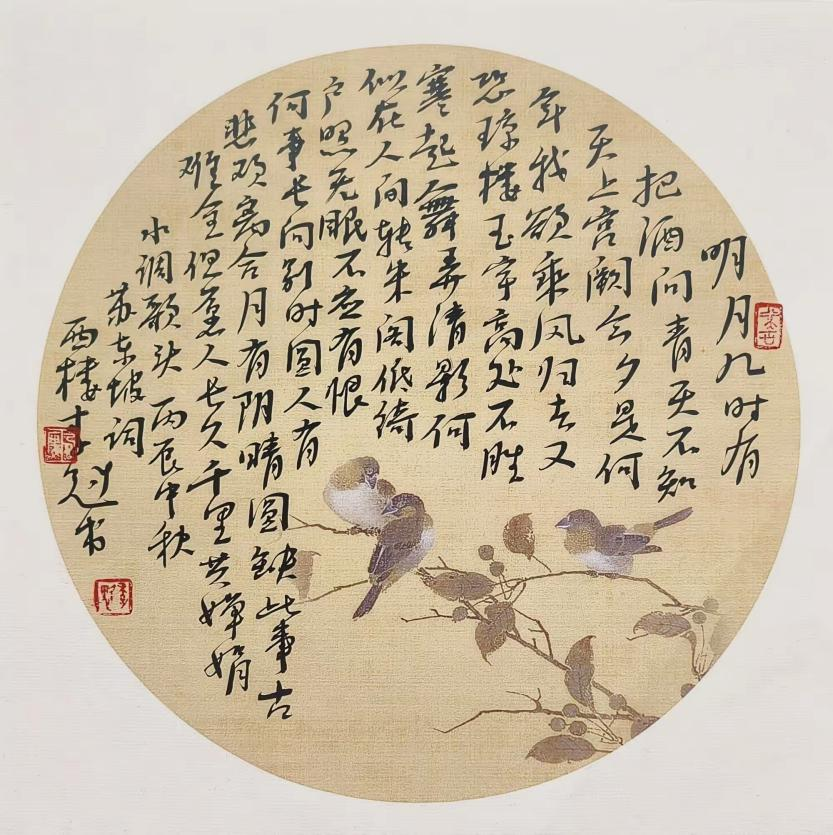 明月几时有
把酒问青天不知
天上宫阙今夕是何
年我欲乘风归去又
恐琼楼玉宇高处不胜
寒起舞弄清影何
似在人间转朱阁低绮
户照无眠不应有恨
何事长向别时圆人有
悲欢离合月有阴晴圆缺此事古
难全但愿人长久千里共婵娟
水调歌头丙辰中秋
苏东坡词
西楼李书